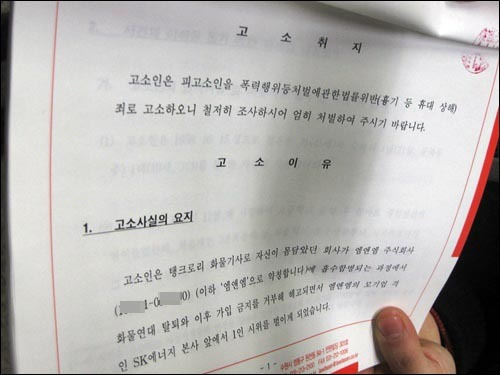 고 소 취 지
고소인은 피고소인을 폭력행위등처벌에관한법률위반(흉기 등 휴대 상해)
죄로 고소하오니 철저히 조사하시어 엄히 처벌하여 주시기 바랍니다.
고 소 이 유
1. 고소사실의 요지
고소인은 탱크로리 화물기사로 자신이 몸담았던 회사가 엠앤엠 주식회사
( 1-0 0) (이하 '엠앤엠'으로 약칭합니다)에 흡수합병되는 과정에서
화물연대 탈퇴와 이후 가입 금지를 거부해 해고되면서 엠앤엠의 모기업 격
인 SK에너지 본사 앞에서 1인 시위를 벌이게 되었습니다.
- 1 -